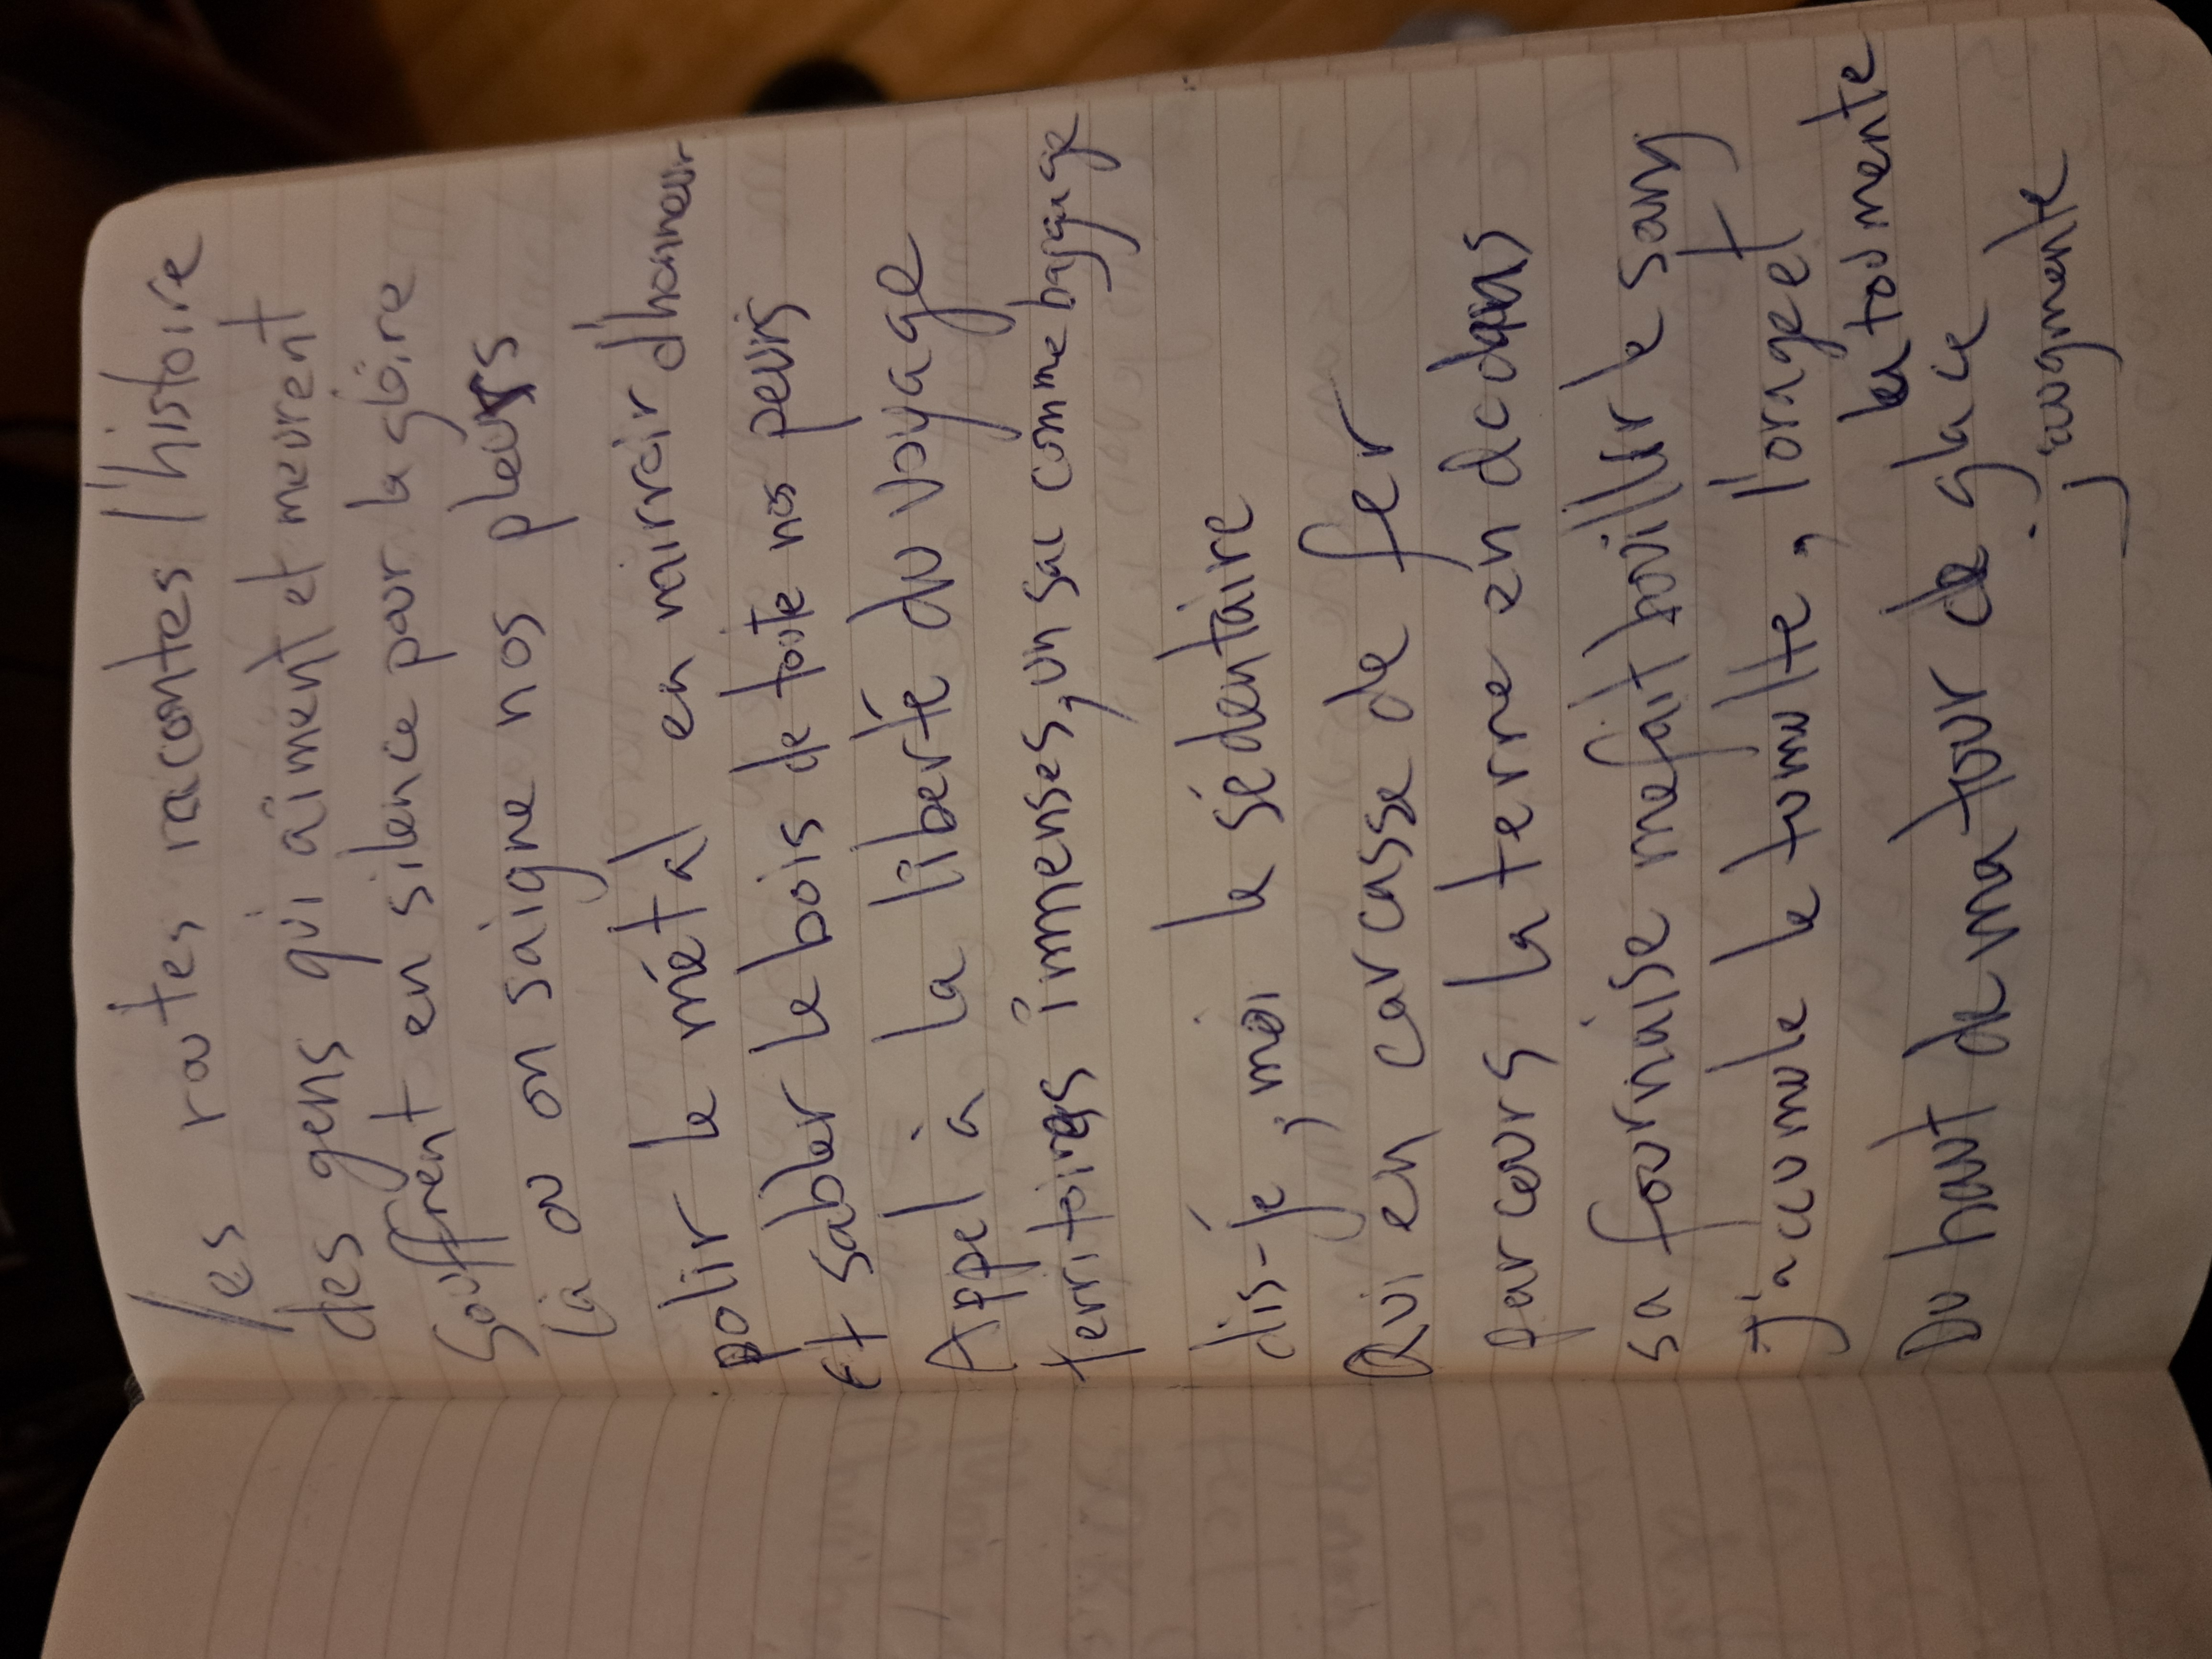 les routes racontes l'histoire
des gens qui aiment et meurent
Souffrent en silence pour la gloire
là ou on saigne nos pleurs
polir le métal en mirroir d'honneur
et sabler le bois de toute nos peurs
Appel à la liberté du voyage
territoires immenses, un sac comme bagage
dis-je, moi la sédentaire
Qui en carcasse de fer
parcours la terre en dedans
sa fournaise me fait bouillir le sang
J'acumule le tumulte, l'orage et
la tourmente
Du haut de ma tour de glace
j'augmente